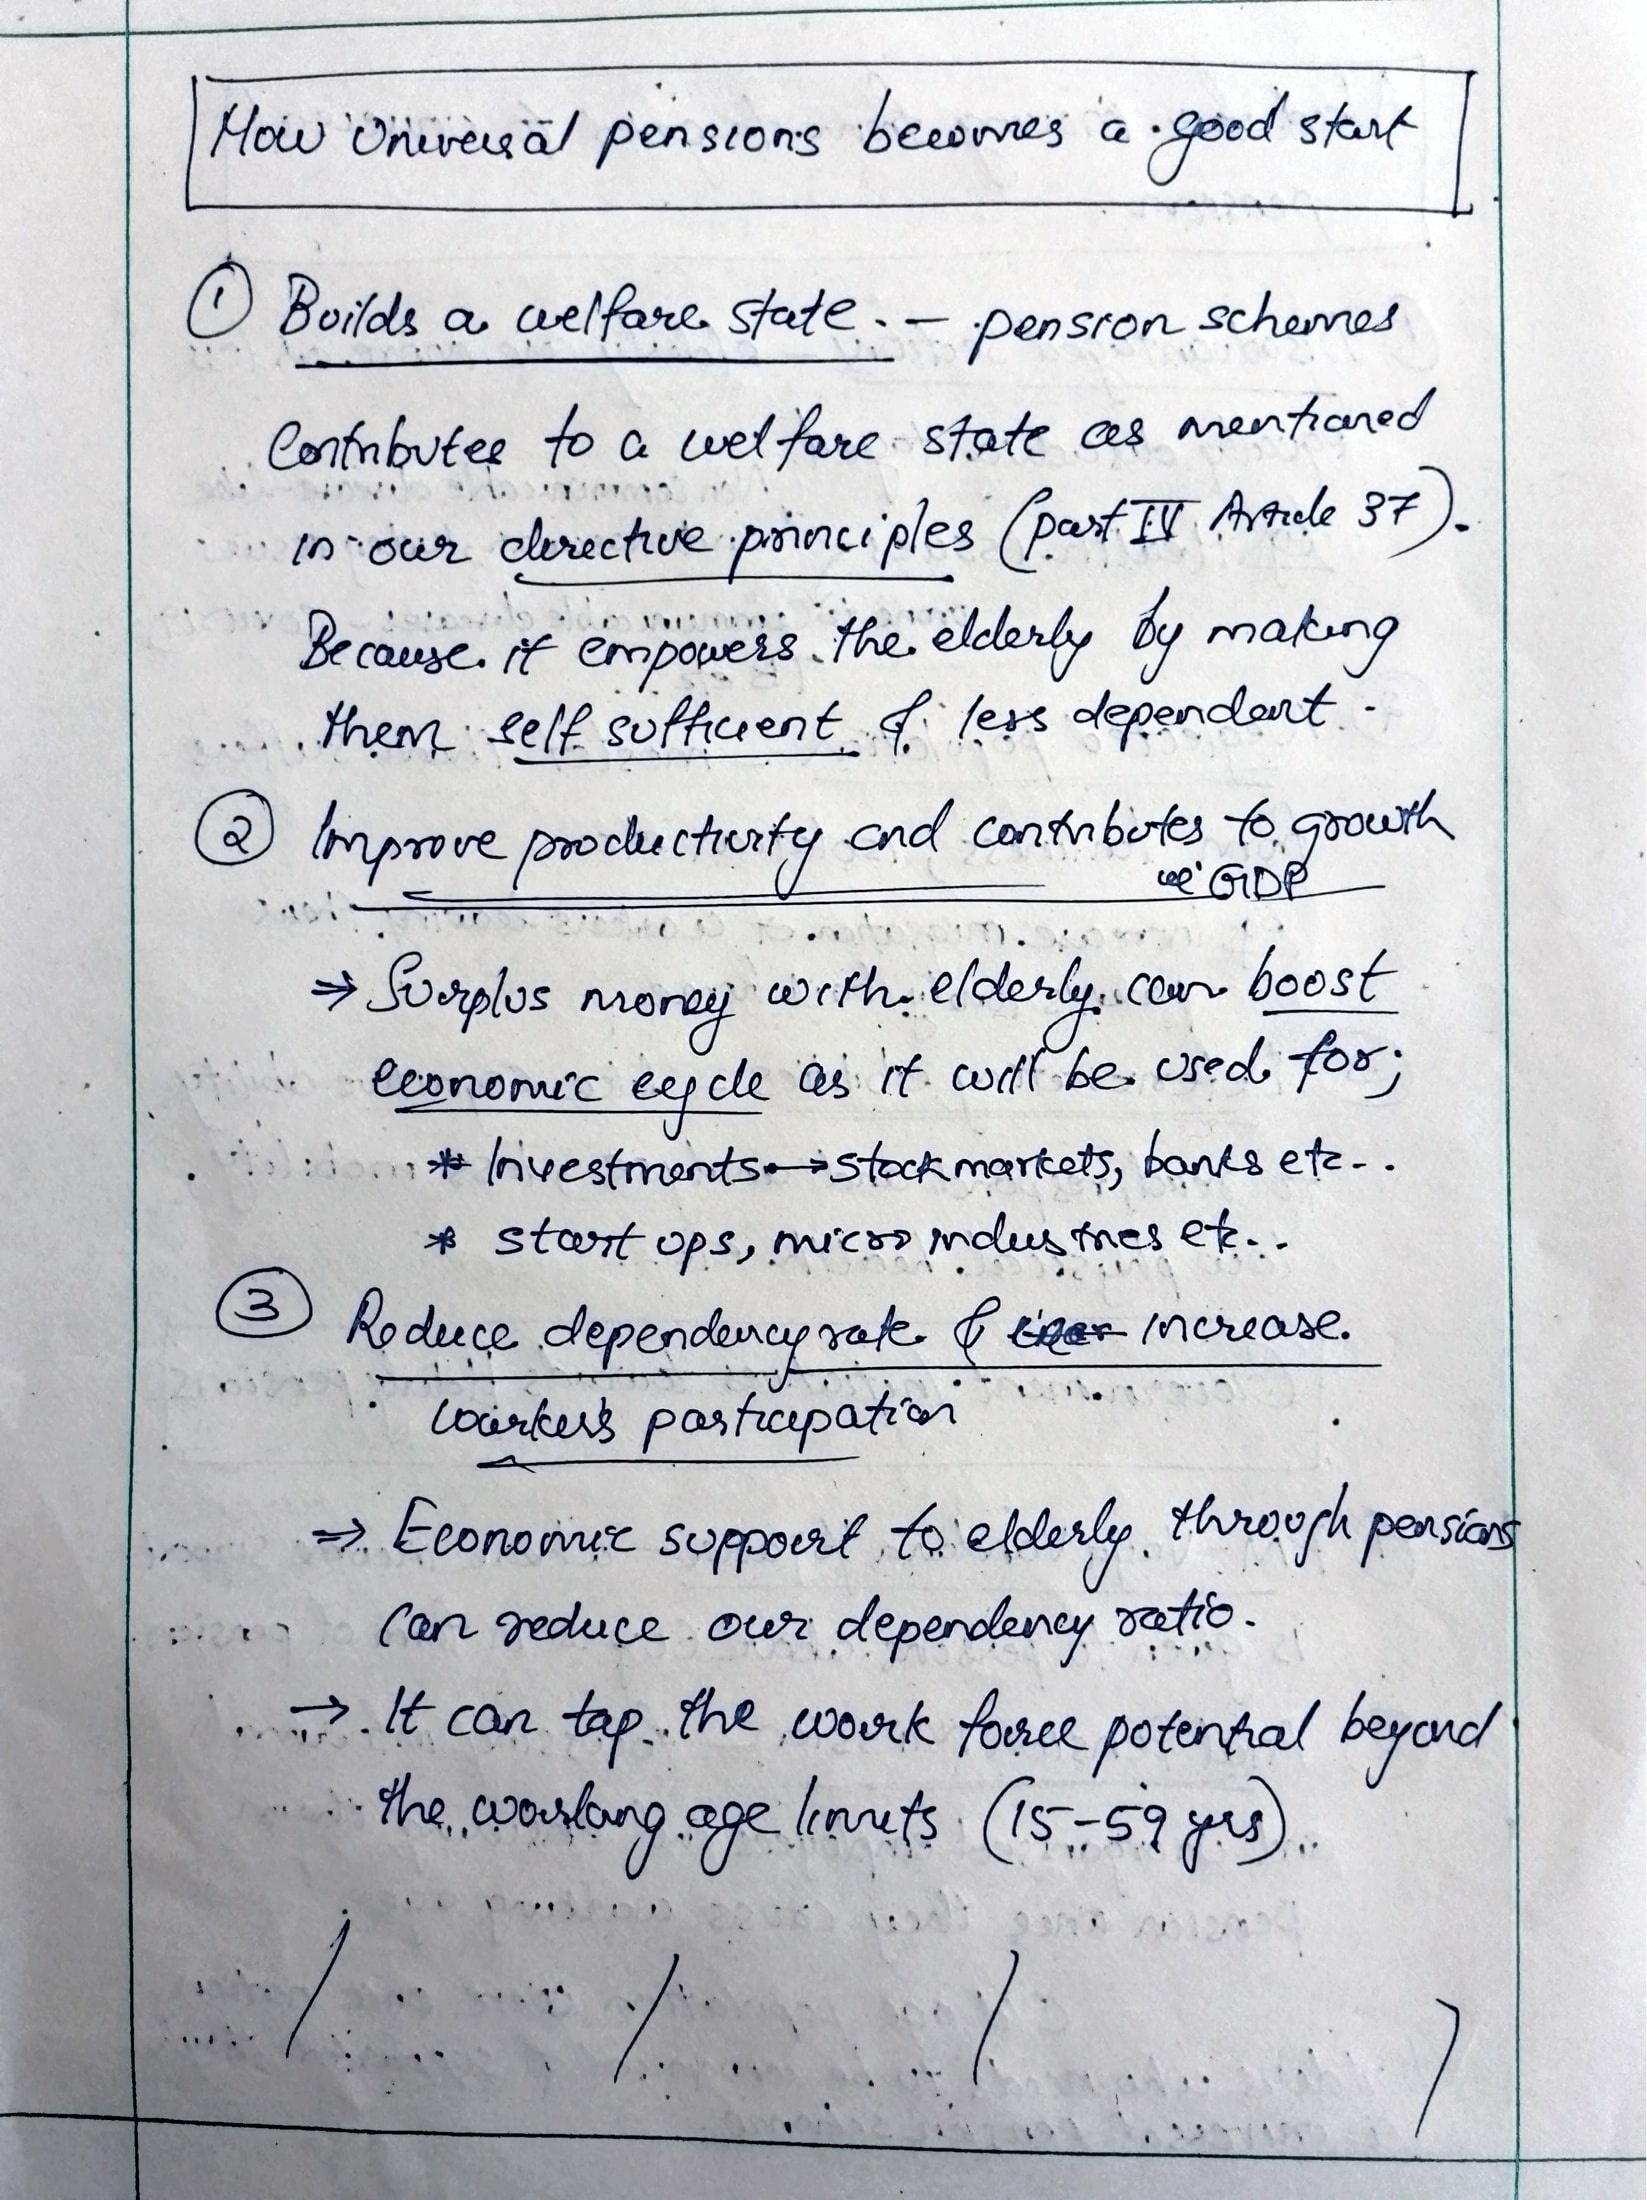 How Universal pensions becomes a good start
① Builds a welfare state. - pension schemes
Contributes to a welfare state as mentioned
in our directive principles (part IV Article 37).
Because it empowers the elderly by making
them self sufficient & less dependent.
② Improve productivity and contributes to growth
GDP
⇒ Surplus money with elderly can boost
economic cycle as it will be used for;
* Investments → stock markets, banks etc..
* start ups, micro industries etc...
③ Reduce dependency rate & increase
worker's participation
⇒ Economic support to elderly through pensions
can reduce our dependency ratio.
→ It can tap the work force potential beyond
the working age limits (15-59 yrs)